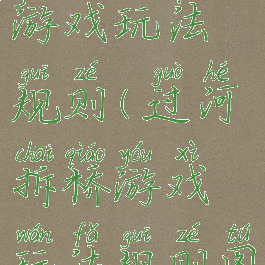 游戏玩法
guī zé guò hé
规则(过河
chāi qiáo yóu xì
拆桥游戏
wán fǎ guī zé tú
玩法规则图